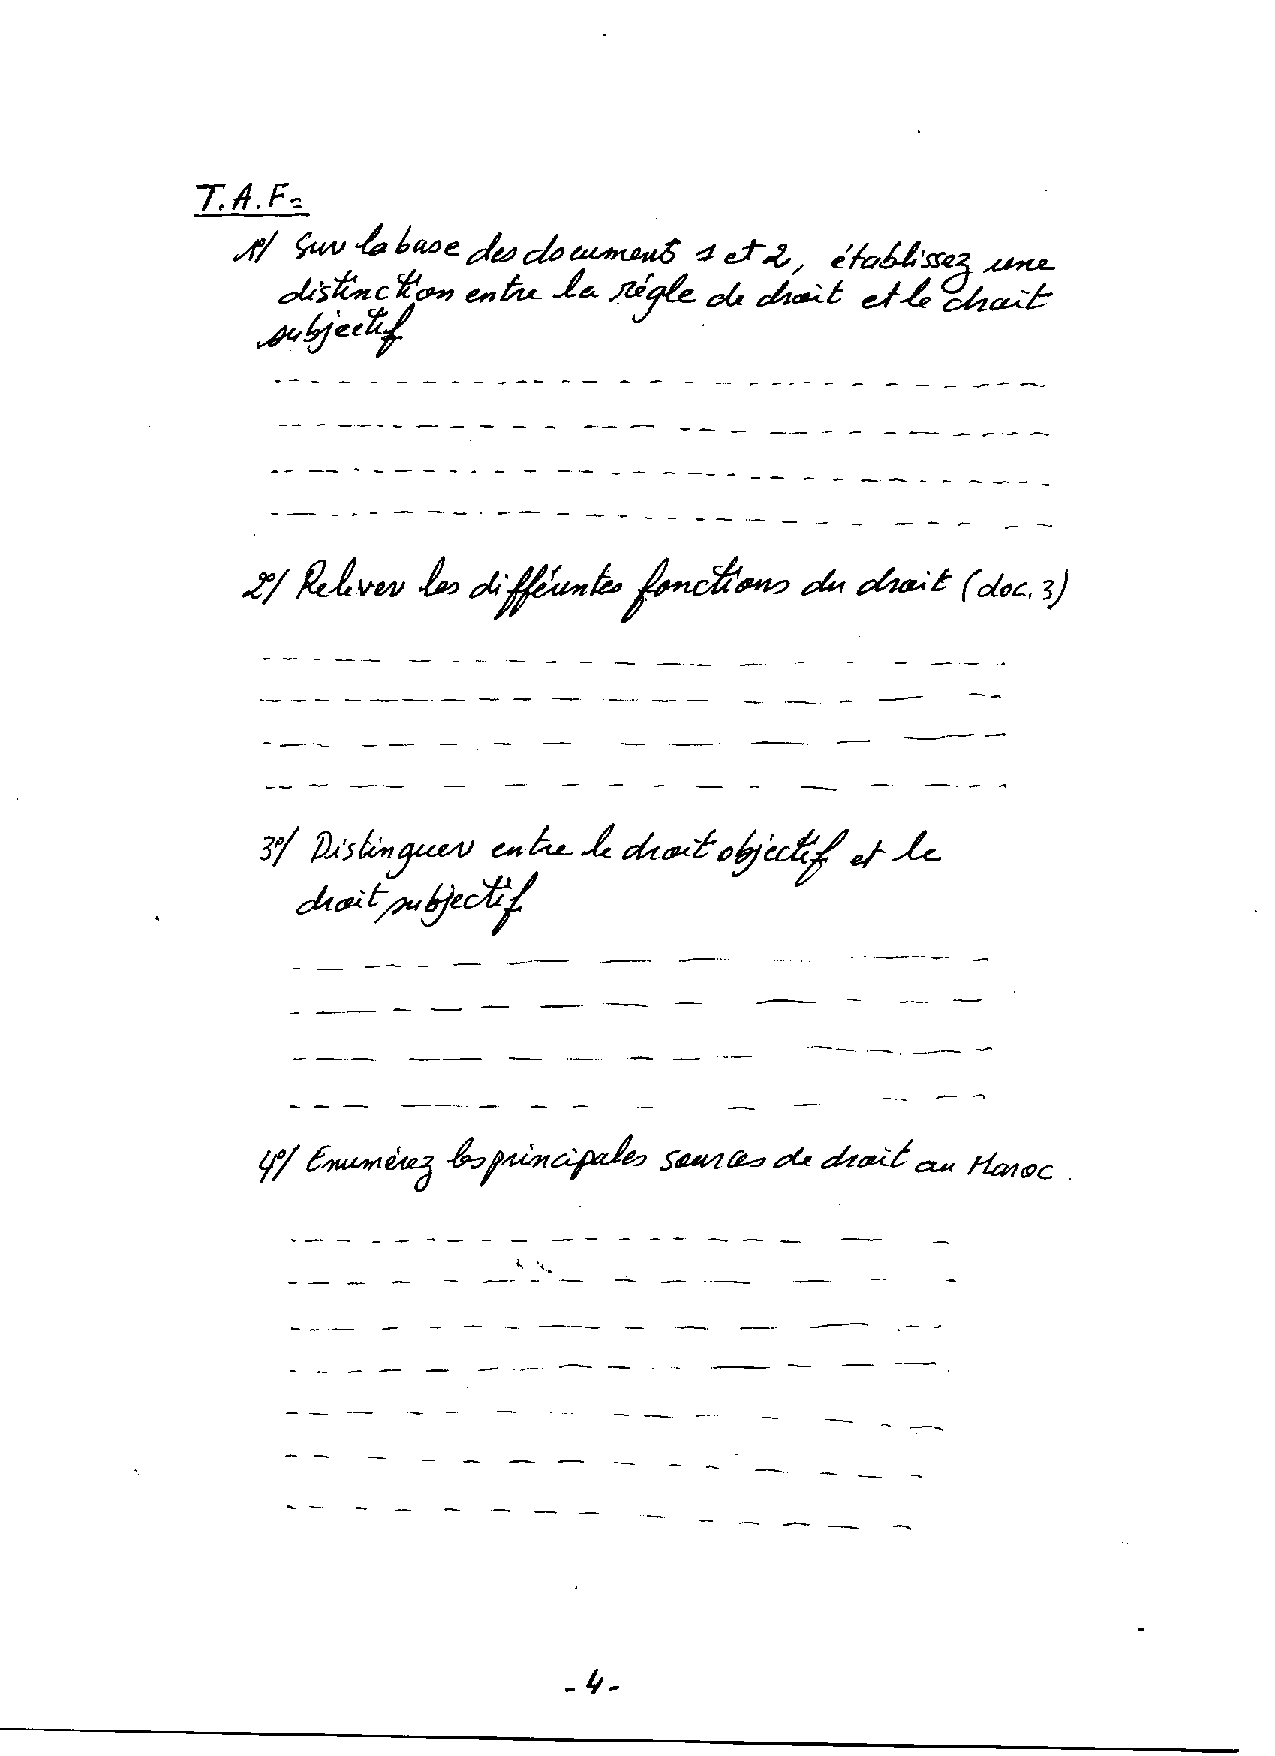 T.A.F=
1°/ Sur la base des documents 1 et 2, établissez une
distinction entre la règle de droit et le droit
subjectif
2°/ Relever les différentes fonctions du droit (doc. 3)
3°/ Distinguer entre le droit objectif et le
droit subjectif
4°/ Enumérez les principales sources de droit au Maroc.
- 4 -